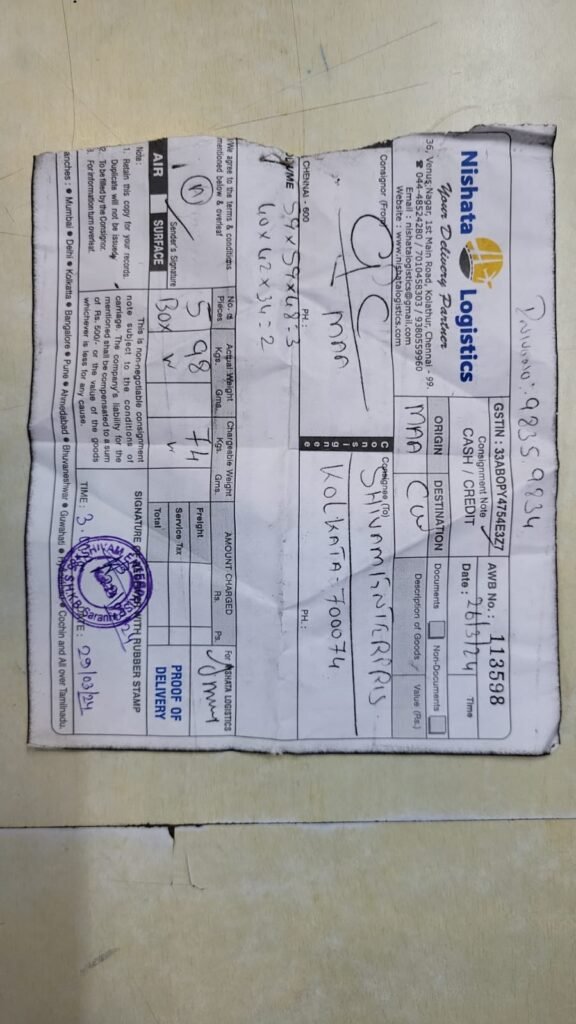 9835 9834
Nishata Logistics
Your Delivery Partner
36, Venus Nagar, 1st Main Road, Kolathur, Chennai - 99.
☎ 044-48524280 / 7010458303 / 9380559960
Email : nishatalogistics@gmail.com
Website : www.nishatalogistics.com
GSTIN : 33ABOPY4754E3Z7
Consignment Note
CASH / CREDIT
AWB No. : 113598
Date : 26/3/24
Time
ORIGIN
MAA
DESTINATION
CCU
Documents
Non-Documents
Description of Goods
Value (Rs.)
Consignor (From)
CPC
MAA
CHENNAI - 600
PH :
Consignee
Consignee (To)
SHIVAM ENTERPRIS.
KOLKATA-700074
PH.:
59x59x48=3
40x42x34=2
We agree to the terms & conditions
mentioned below & overleaf
Sender's Signature
AIR
SURFACE
No. of Pieces
5
BOX
Actual Weight
Kgs. Gms.
98
Chargeable Weight
Kgs. Gms.
74
AMOUNT CHARGED
Rs. Ps.
Freight
Service Tax
Total
For NISHATA LOGISTICS
PROOF OF
DELIVERY
Note :
1. Retain this copy for your records.
Duplicate will not be issued.
2. To be filled by the Consignor.
3. For information turn overleaf.
This is non-negotiable consignment
note subject to the conditions of
carriage. The company's liability for the
mentioned shall be compensated to a sum
of Rs. 500/- or the value of the goods
whichever is less for any cause.
SIGNATURE WITH RUBBER STAMP
TIME : 3.
DATE : 29/03/24
anches : ● Mumbai ● Delhi ● Kolkatta ● Bangalore ● Pune ● Ahmedabad ● Bhuvaneshwar ● Guwahati ● Cochin and All over Tamilnadu.